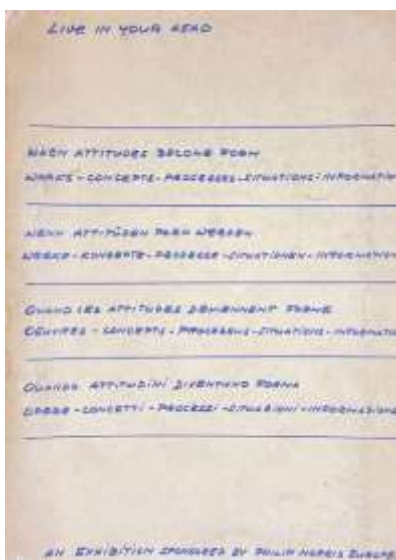 LIVE IN YOUR HEAD
WHEN ATTITUDES BECOME FORM
WORKS - CONCEPTS - PROCESSES - SITUATIONS - INFORMATION
WENN ATTITÜDEN FORM WERDEN
WERKE - KONZEPTE - PROZESSE - SITUATIONEN - INFORMATION
QUAND LES ATTITUDES DEVIENNENT FORME
OEUVRES - CONCEPTS - PROCESSUS - SITUATIONS - INFORMATI
QUANDO ATTITUDINI DIVENTANO FORMA
OPERE - CONCETTI - PROCESSI - SITUAZIONI - INFORMAZIONE
AN EXHIBITION SPONSORED BY PHILIP MORRIS EUROPE